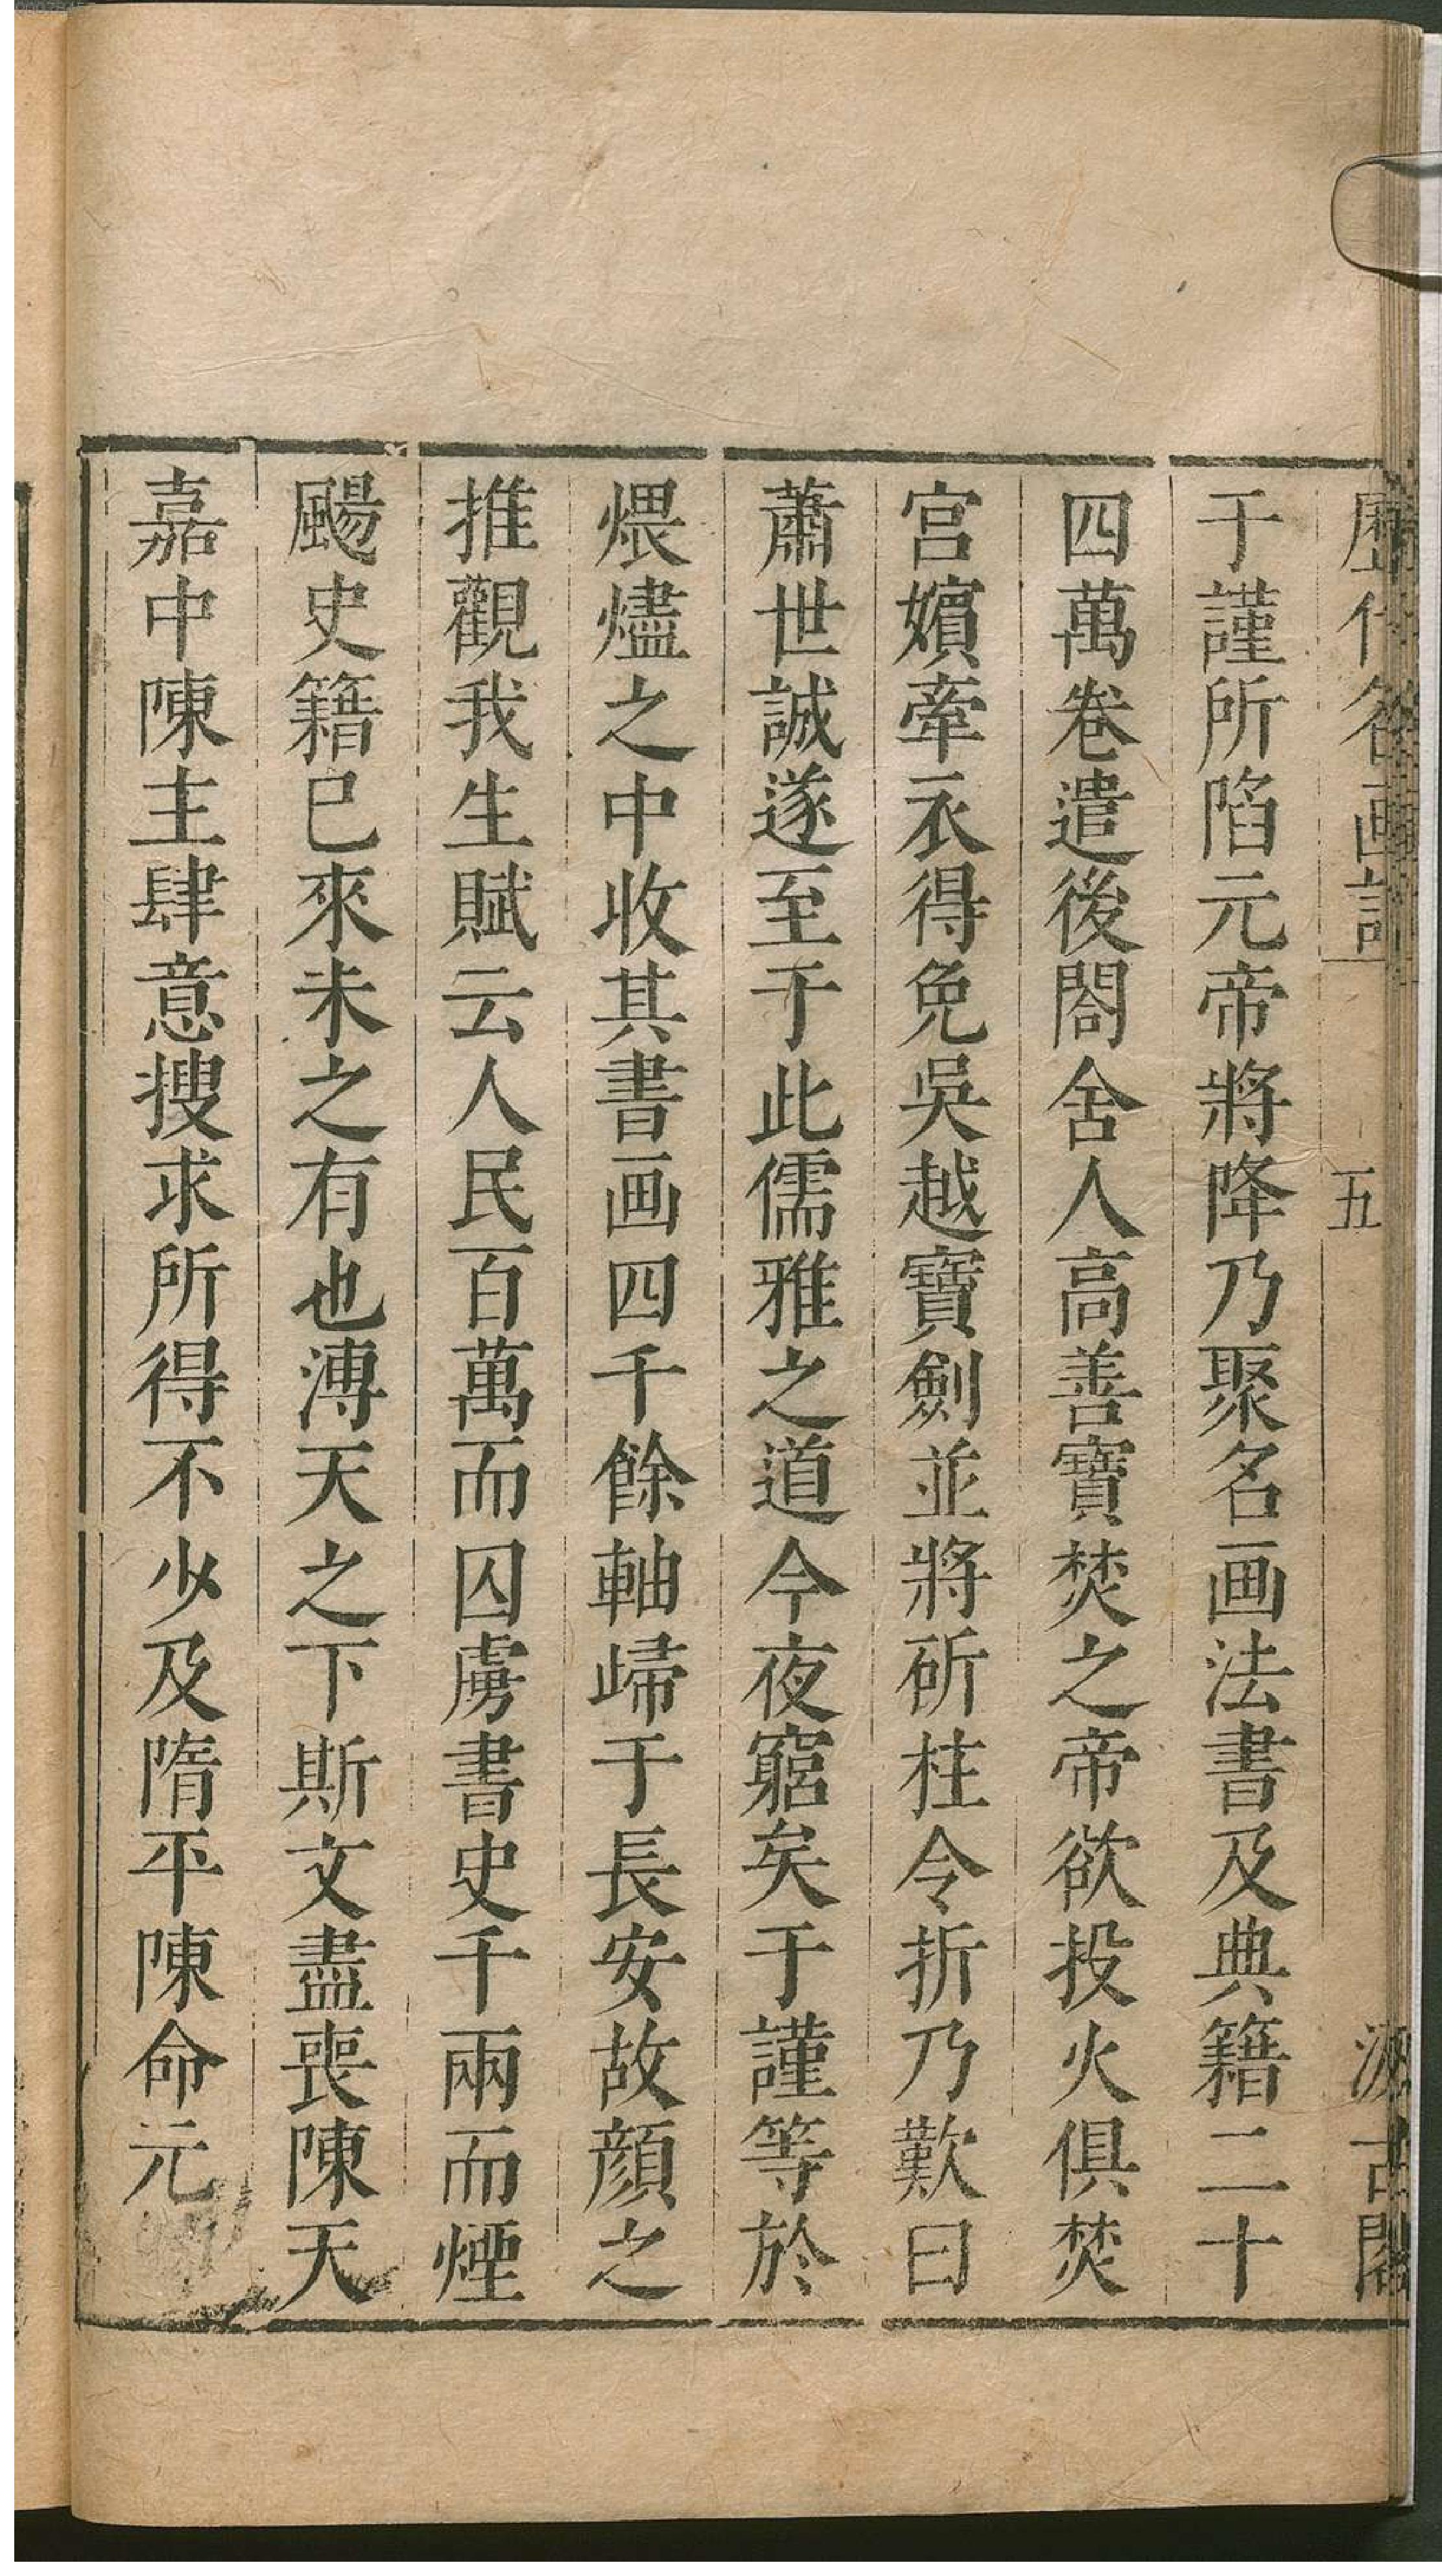 歷代名画記 五 汲古閣
于謹所陷元帝將降乃聚名画法書及典籍二十
四萬卷遣後閤舍人高善寶焚之帝欲投火俱焚
宮嬪牽衣得免吳越寶劍並將斫柱令折乃歎曰
蕭世誠遂至于此儒雅之道今夜窮矣于謹等於
煨燼之中收其書画四千餘軸歸于長安故顏之
推觀我生賦云人民百萬而囚虜書史千兩而煙
颺史籍已來未之有也溥天之下斯文盡喪陳天
嘉中陳主肆意搜求所得不少及隋平陳命元